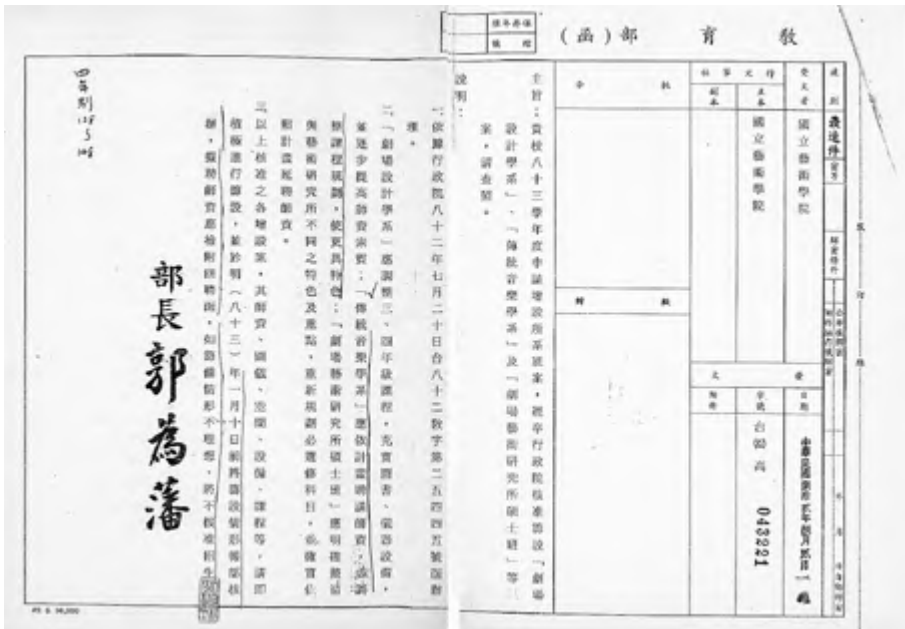 教育部(函)
保存年限
檔號
速別
最速件
密等
受文者
國立藝術學院
行文單位
正本
國立藝術學院
副本
發文
日期
字號
台高
043221
附件
批示
擬辦
主旨：貴校八十三學年度申請增設所系班案，經奉行政院核准籌設「劇場
設計學系」、「傳統音樂學系」及「劇場藝術研究所碩士班」等三
案，請查照。
說明：
一、依據行政院八十二年七月二十日台八十二教字第二五四四五號函辦
理。
二、「劇場設計學系」應調整三、四年級課程，充實圖書、儀器設備，
並逐步提高師資素質；「傳統音樂學系」應依計畫聘請師資，並調
整課程規劃，使更具特色；「劇場藝術研究所碩士班」應明確
與藝術研究所不同之特色及重點，重新規劃必選修科目，並確實依
照計畫延聘師資。
三、以上核准之各增設案，其師資、圖儀、空間、設備、課程等，請即
積極進行籌設，並於明（八十三）年一月十日前將籌設情形報部核
辦，擬聘師資應檢附應聘函，如籌備情形不理想，將不核准招生
部長郭為藩